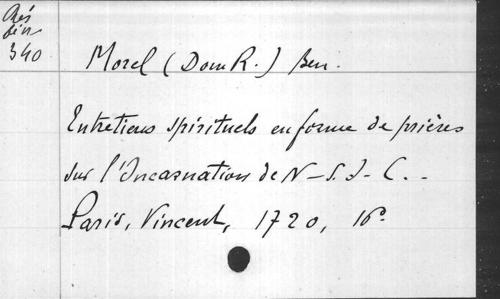 Rés
340
Morel (Dom R.) Ben.
Entretiens spirituels en forme de prières
sur l'Incarnation de N-S.J-C. -
Paris, Vincent, 1720, 16°